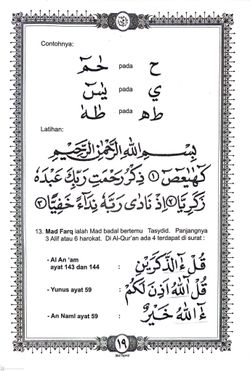 Contohnya:
ح pada حٰمٓ
ي pada يٰسٓ
ط ه pada طٰهٰ
Latihan:
بِسْمِ اللّٰهِ الرَّحْمٰنِ الرَّحِيْمِ
كٓهٰيٰعٓصٓ ﴿١﴾ ذِكْرُ رَحْمَتِ رَبِّكَ عَبْدَهٗ
زَكَرِيَّا ﴿٢﴾ اِذْ نَادٰى رَبَّهٗ نِدَآءً خَفِيًّا ﴿٣﴾
13. Mad Farq ialah Mad badal bertemu Tasydid. Panjangnya
3 Alif atau 6 harokat. Di Al-Qur'an ada 4 terdapat di surat :
- Al An 'am
ayat 143 and 144 : قُلْ ءٰٓالذَّكَرَيْنِ
- Yunus ayat 59 : قُلْ آللّٰهُ اَذِنَ لَكُمْ
- An Naml ayat 59 : ءٰٓاللّٰهُ خَيْرٌ
١٩